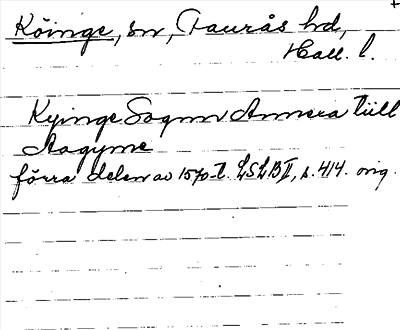 Köinge, sn, Faurås hd,
Hall. l.
Kyinge Sognn Annexa tiill
Aagyme
förra delen av 1570-t. LSLB II, s. 414. orig.